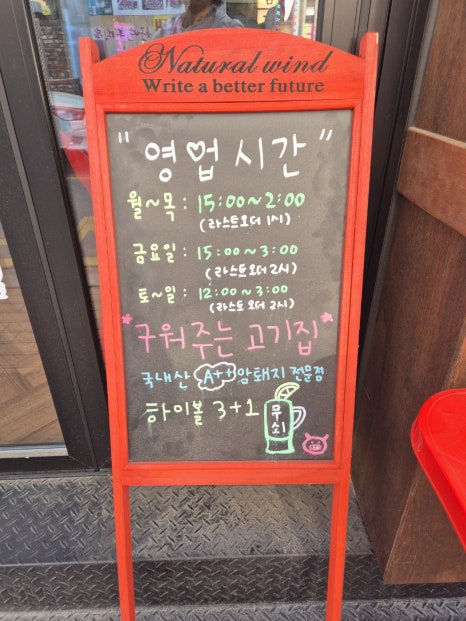 Natural wind
Write a better future
" 영업시간 "
월~목 : 15:00~2:00
(라스트오더 1시)
금요일 : 15:00~3:00
(라스트오더 2시)
토~일 : 12:00~3:00
(라스트오더 2시)
*구워주는 고기집*
국내산 A++ 암돼지 전문점
하이볼 3+1
무쇠